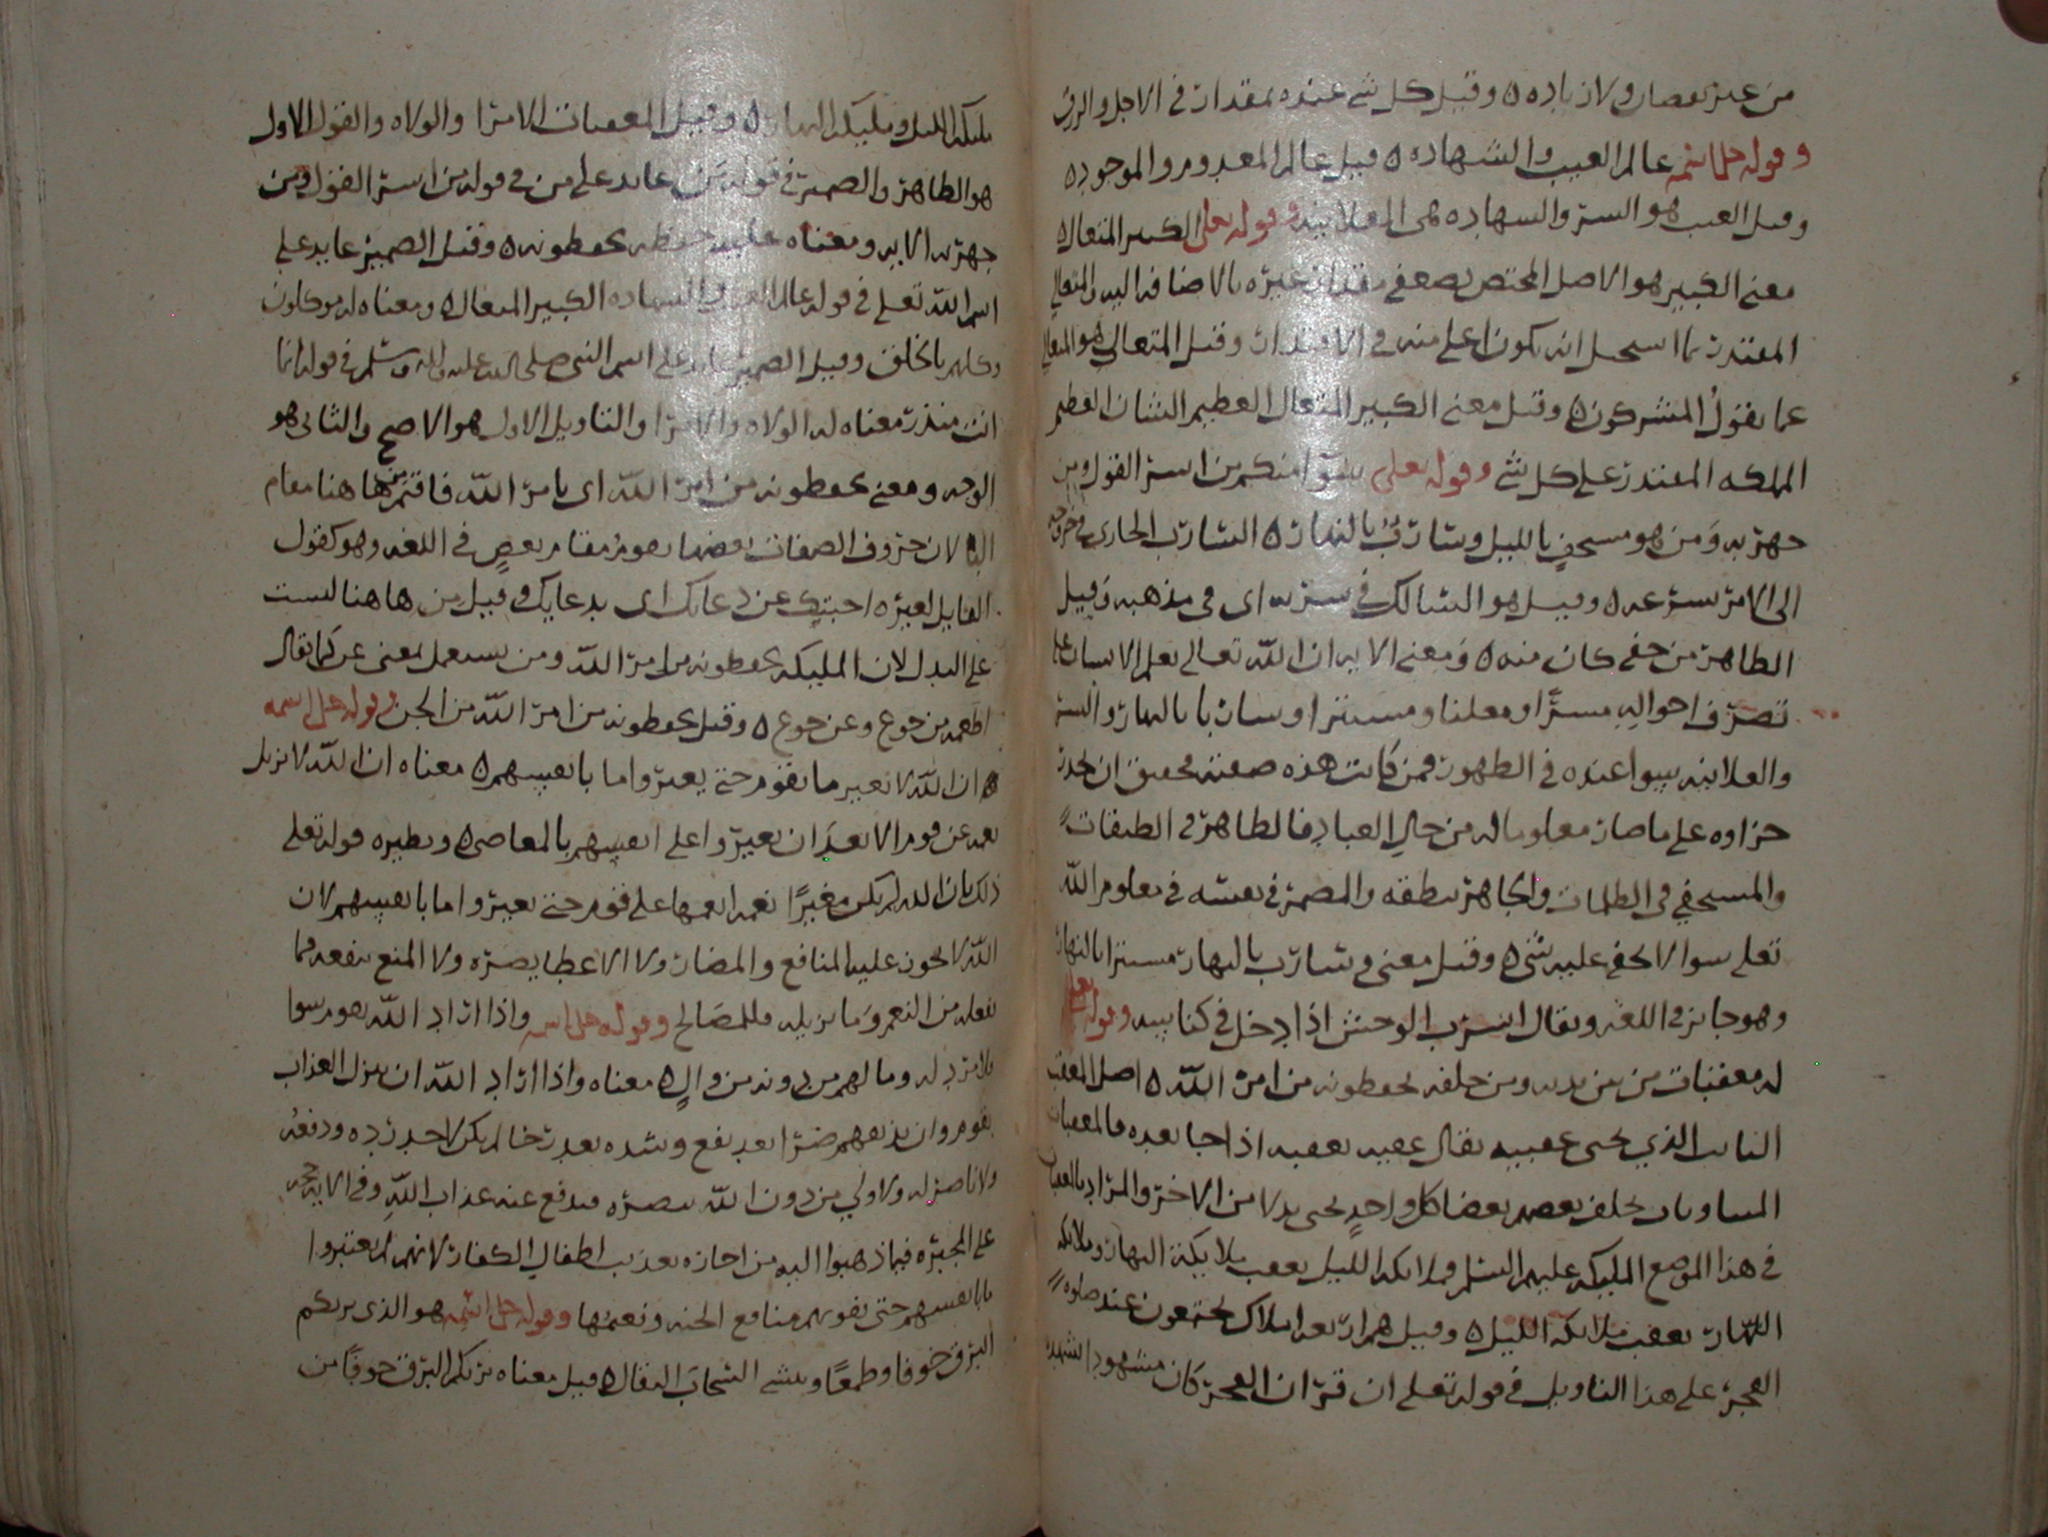 من غير نقصان ولا زياده ٥ وقيل كل شي عنده بمقدار في الاجل والرزق
وقوله جل اسمه عالم الغيب والشهاده ٥ قيل عالم المعدوم والموجود ٥
وقيل الغيب هو السر والشهاده هي العلانيه وقوله تعلى الكبير المتعال ٥
معنى الكبير هو الاصل المختص بصفه مقدار غيره بالاضافه اليه والمتعالي
المقتدر بما استحيل انه يكون اعلى منه في الاقتدار وقيل المتعالي هو المتعالي
عما يقول المشركون ٥ وقيل معنى الكبير المتعال العظيم الشان العظيم
المملكه المقتدر على كل شي وقوله تعلى سوا منكم من اسر القول ومن
جهر به ومن هو مستخفٍ بالليل وسارب بالنهار ٥ السارب الجاري
الى الامر بسرعه ٥ وقيل هو السالك في سربه اي في مذهبه وقيل
الظاهر من خفي كان منه ٥ ومعنى الايه ان الله تعالى يعلم الانسان على
تصرف احواله مسرًا ومعلنا ومستترا وساربا بالنهار والسر
والعلانيه سوا عنده في الظهور فمن كانت هذه صفته فحقيق ان يحذر
جزاوه على ما صار معلوما له من حال العباد فالظاهر في الطرقات
والمستخفي في الظلمات والجاهر بنطقه والمضمر في نفسه في معلوم الله
تعلى سوا لا يخفى عليه شي ٥ وقيل معنى وسارب بالنهار مستترا بالنهار
وهو جايز في اللغه ويقال انسرب الوحش اذا دخل في كناسه وقوله تعلى
له معقبات من بين يديه ومن خلفه يحفظونه من امر الله ٥ اصل المعقب
النايب الذي يجي عقيبه يقال عقبه يعقبه اذا جا بعده فالمعقبات
المتناوبات يخلف بعضهم بعضا كل واحدٍ يجي بدلا من الاخر والمراد بالمعقبات
في هذا الموضع المليكه عليهم السلم فملائكه الليل يعقب ملايكه النهار وملايكه
النهار يعقب ملائكه الليل ٥ وقيل هم اربعه املاك يجتمعون عند صلوه
الفجر على هذا التاويل في قوله تعلى ان قران الفجر كان مشهودا
مليكه الليل ومليكه النهار ٥ وقيل المعقبات الامرا والولاه والقول الاول
هو الظاهر والضمير في قوله عايد على من في قوله من اسر القول ومن
جهر به الايه ومعناه عليه حفظه يحفظونه ٥ وقيل الضمير عايد على
اسم الله تعلى في قوله عالم الغيب والشهاده الكبير المتعال ٥ ومعناه له موكلون
وكلهم بالخلق وقيل الضمير عايد على اسم النبي صلى الله عليه واله وسلم في قوله انما
انت منذر معناه له الولاه والامرا والتاويل الاول هو الاصح والثاني هو
الوجه ومعنى يحفظونه من امر الله اي بامر الله فاقتم من ها هنا مقام
البا لان حروف الصفات بعضها يقوم مقام بعضٍ في اللغه وهو كقول
القايل لغيره اجبتك عن دعايك اي بدعايك وقيل من ها هنا ليست
على البدل لان المليكه يحفظونه من امر الله ومن يستعمل بمعنى عن كما يقال
اطعمه من جوع وعن جوع ٥ وقيل يحفظونه من امر الله من الجن وقوله جل اسمه
ان الله لا يغير ما بقوم حتى يغيروا ما بانفسهم ٥ معناه ان الله لا يزيل
نعمه عن قوم الا بعد ان يغيروا على انفسهم بالمعاصي ٥ ونظيره قوله تعلى
ذلك بان الله لم يكن مغيرًا نعمه انعمها على قوم حتى يغيروا ما بانفسهم لان
الله لا تجوز عليه المنافع والمضار ولا الاعطا يضره ولا المنع ينفعه فما
يفعله من النعم وما يزيله فللمصالح وقوله جل اسمه واذا اراد الله بقوم سوا
فلا مرد له وما لهم من دونه من والٍ ٥ معناه واذا اراد الله ان ينزل العذاب
بقوم وان يذيقهم ضرا بعد نفع وشده بعد رخا لم يكن لاحد رده ودفعه
ولا ناصر له ولا ولي من دون الله ينصره فيدفع عنه عذاب الله وفي الايه حجه
على المجبره فيما ذهبوا اليه من اجازه تعذيب اطفال الكفار لانهم لم يغيروا
ما بانفسهم حتى يفوتهم منافع الجنه ونعيمها وقوله جل اسمه هو الذي يريكم
البرق خوفا وطمعًا وينشي السحاب الثقال ٥ قيل معناه يريكم البرق خوفًا من